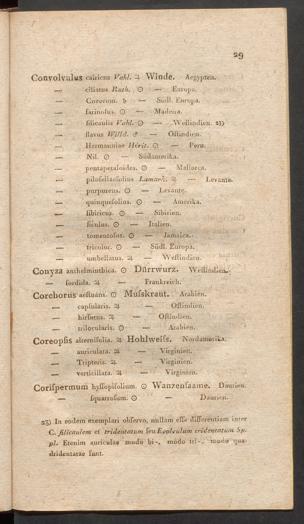 29
Convolvulus cairicus Vahl. ♃ Winde. Aegypten.
— ciliatus Roth. ⊙ — Europa.
— Cneorum. ♄ — Südl. Europa.
— farinosus. ⊙ — Madeira.
— filicaulis Vahl. ⊙ — Westindien. 23)
— flavus Willd. ♂ — Ostindien.
— Hermanniae Hérit. ⊙ — Peru.
— Nil. ⊙ — Südamerika.
— pentapetaloides. ⊙ — Mallorca.
— Lamark. ♃ — Levante.
— purpureus. ⊙ — Levante.
— quinquefolius. ⊙ — Amerika.
— sibiricus. ⊙ — Sibirien.
— siculus. ⊙ — Italien.
— tomentosus. ⊙ — Jamaica.
— tricolor. ⊙ — Südl. Europa.
— umbellatus. ♃ — Westindien.
Conyza anthelminthica. ⊙ Dürrwurz. Westindien.
— sordida. ♃ — Frankreich.
Corchorus aestuans. ⊙ Musskraut. Arabien.
— capsularis. ♃ — Ostindien.
— hirsutus. ♃ — Ostindien.
— trilocularis. ⊙ — Arabien.
Coreopsis alternifolia. ♃ Hohlweiss. Nordamerika.
— auriculata. ♃ — Virginien.
— Tripteris. ♃ — Virginien.
— verticillata. ♃ — Virginien.
Corispermum hyssopifolium. ⊙ Wanzensaame. Daurien.
— squarrosum. ⊙ — Daurien.
23) In eodem exemplari observo, nullam esse differentiam inter
C. filicaulem et tridentatum seu Evolvulum tridentatum Sp.
pl. Etenim auriculae modo bi-, modo tri-, modo qua
dridentatae sunt.